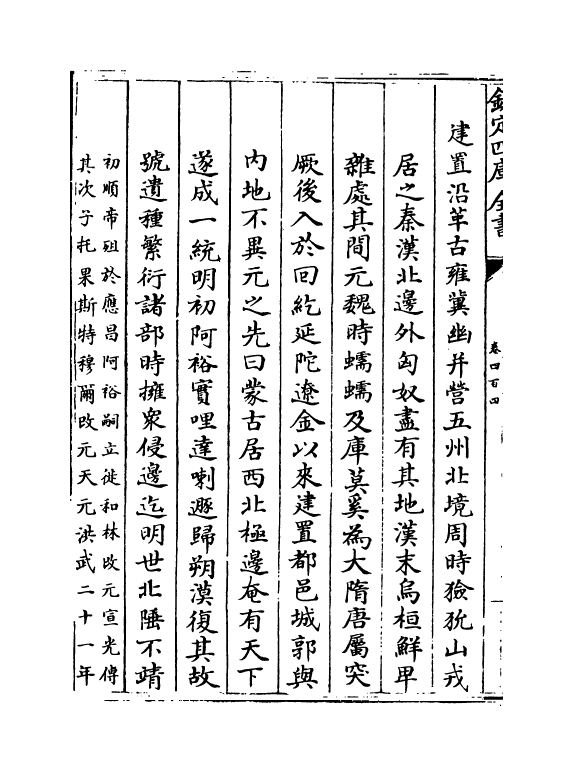 欽定四庫全書
卷四百四
建置沿革古雍冀幽并營五州北境周時獫狁山戎
居之秦漢北邊外匈奴盡有其地漢末烏桓鮮卑
雜處其間元魏時蠕蠕及庫莫奚為大隋唐屬突
厥後入於回紇延陀遼金以來建置都邑城郭與
内地不異元之先曰蒙古居西北極邊奄有天下
遂成一統明初阿裕實哩達喇遯歸朔漠復其故
號遺種繁衍諸部時擁衆侵邊迄明世北陲不靖
初順帝殂於應昌阿裕嗣立徙和林改元宣光傳
其次子托果斯特穆爾改元天元洪武二十一年